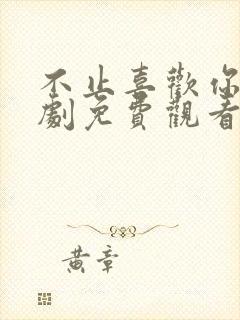 不止喜歡你
劇免費觀看
黃章